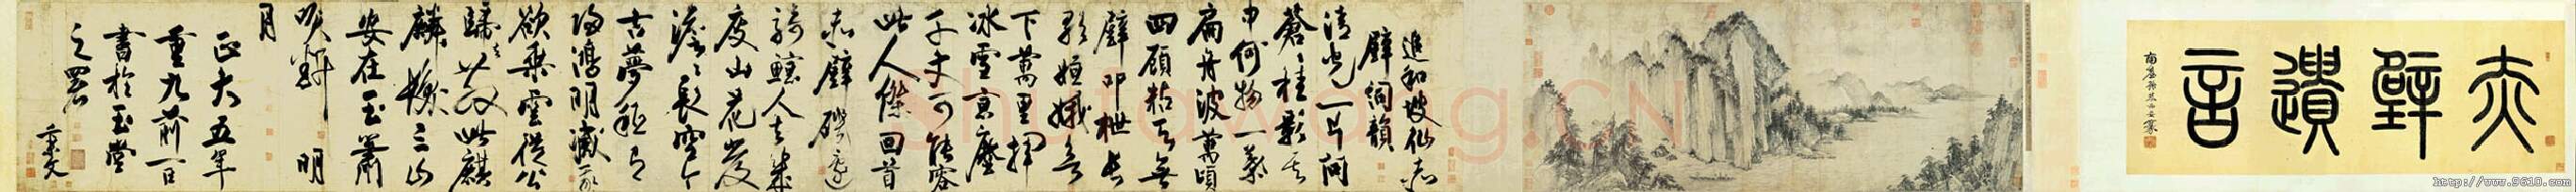 赤壁遺音
追和坡仙赤
壁詞韻
清光一片問
蒼〻桂影其
中何物一葉
扁舟波萬頃
四顧粘天無
壁叩枻長
歌姮娥欲
下萬里揮
冰雪京塵
千丈可能容
此人傑回首
赤壁磯邊
騎鯨人去幾
度山花發
澹〻長空今
古夢秖有
歸鴻明滅我
欲乘雲從公
歸去散此麒
麟髮三山
安在玉簫
吹斷明
月
正大五年
重九前一日
書於玉堂
之署
秉文
shufawang.CN
http://www.9610.com